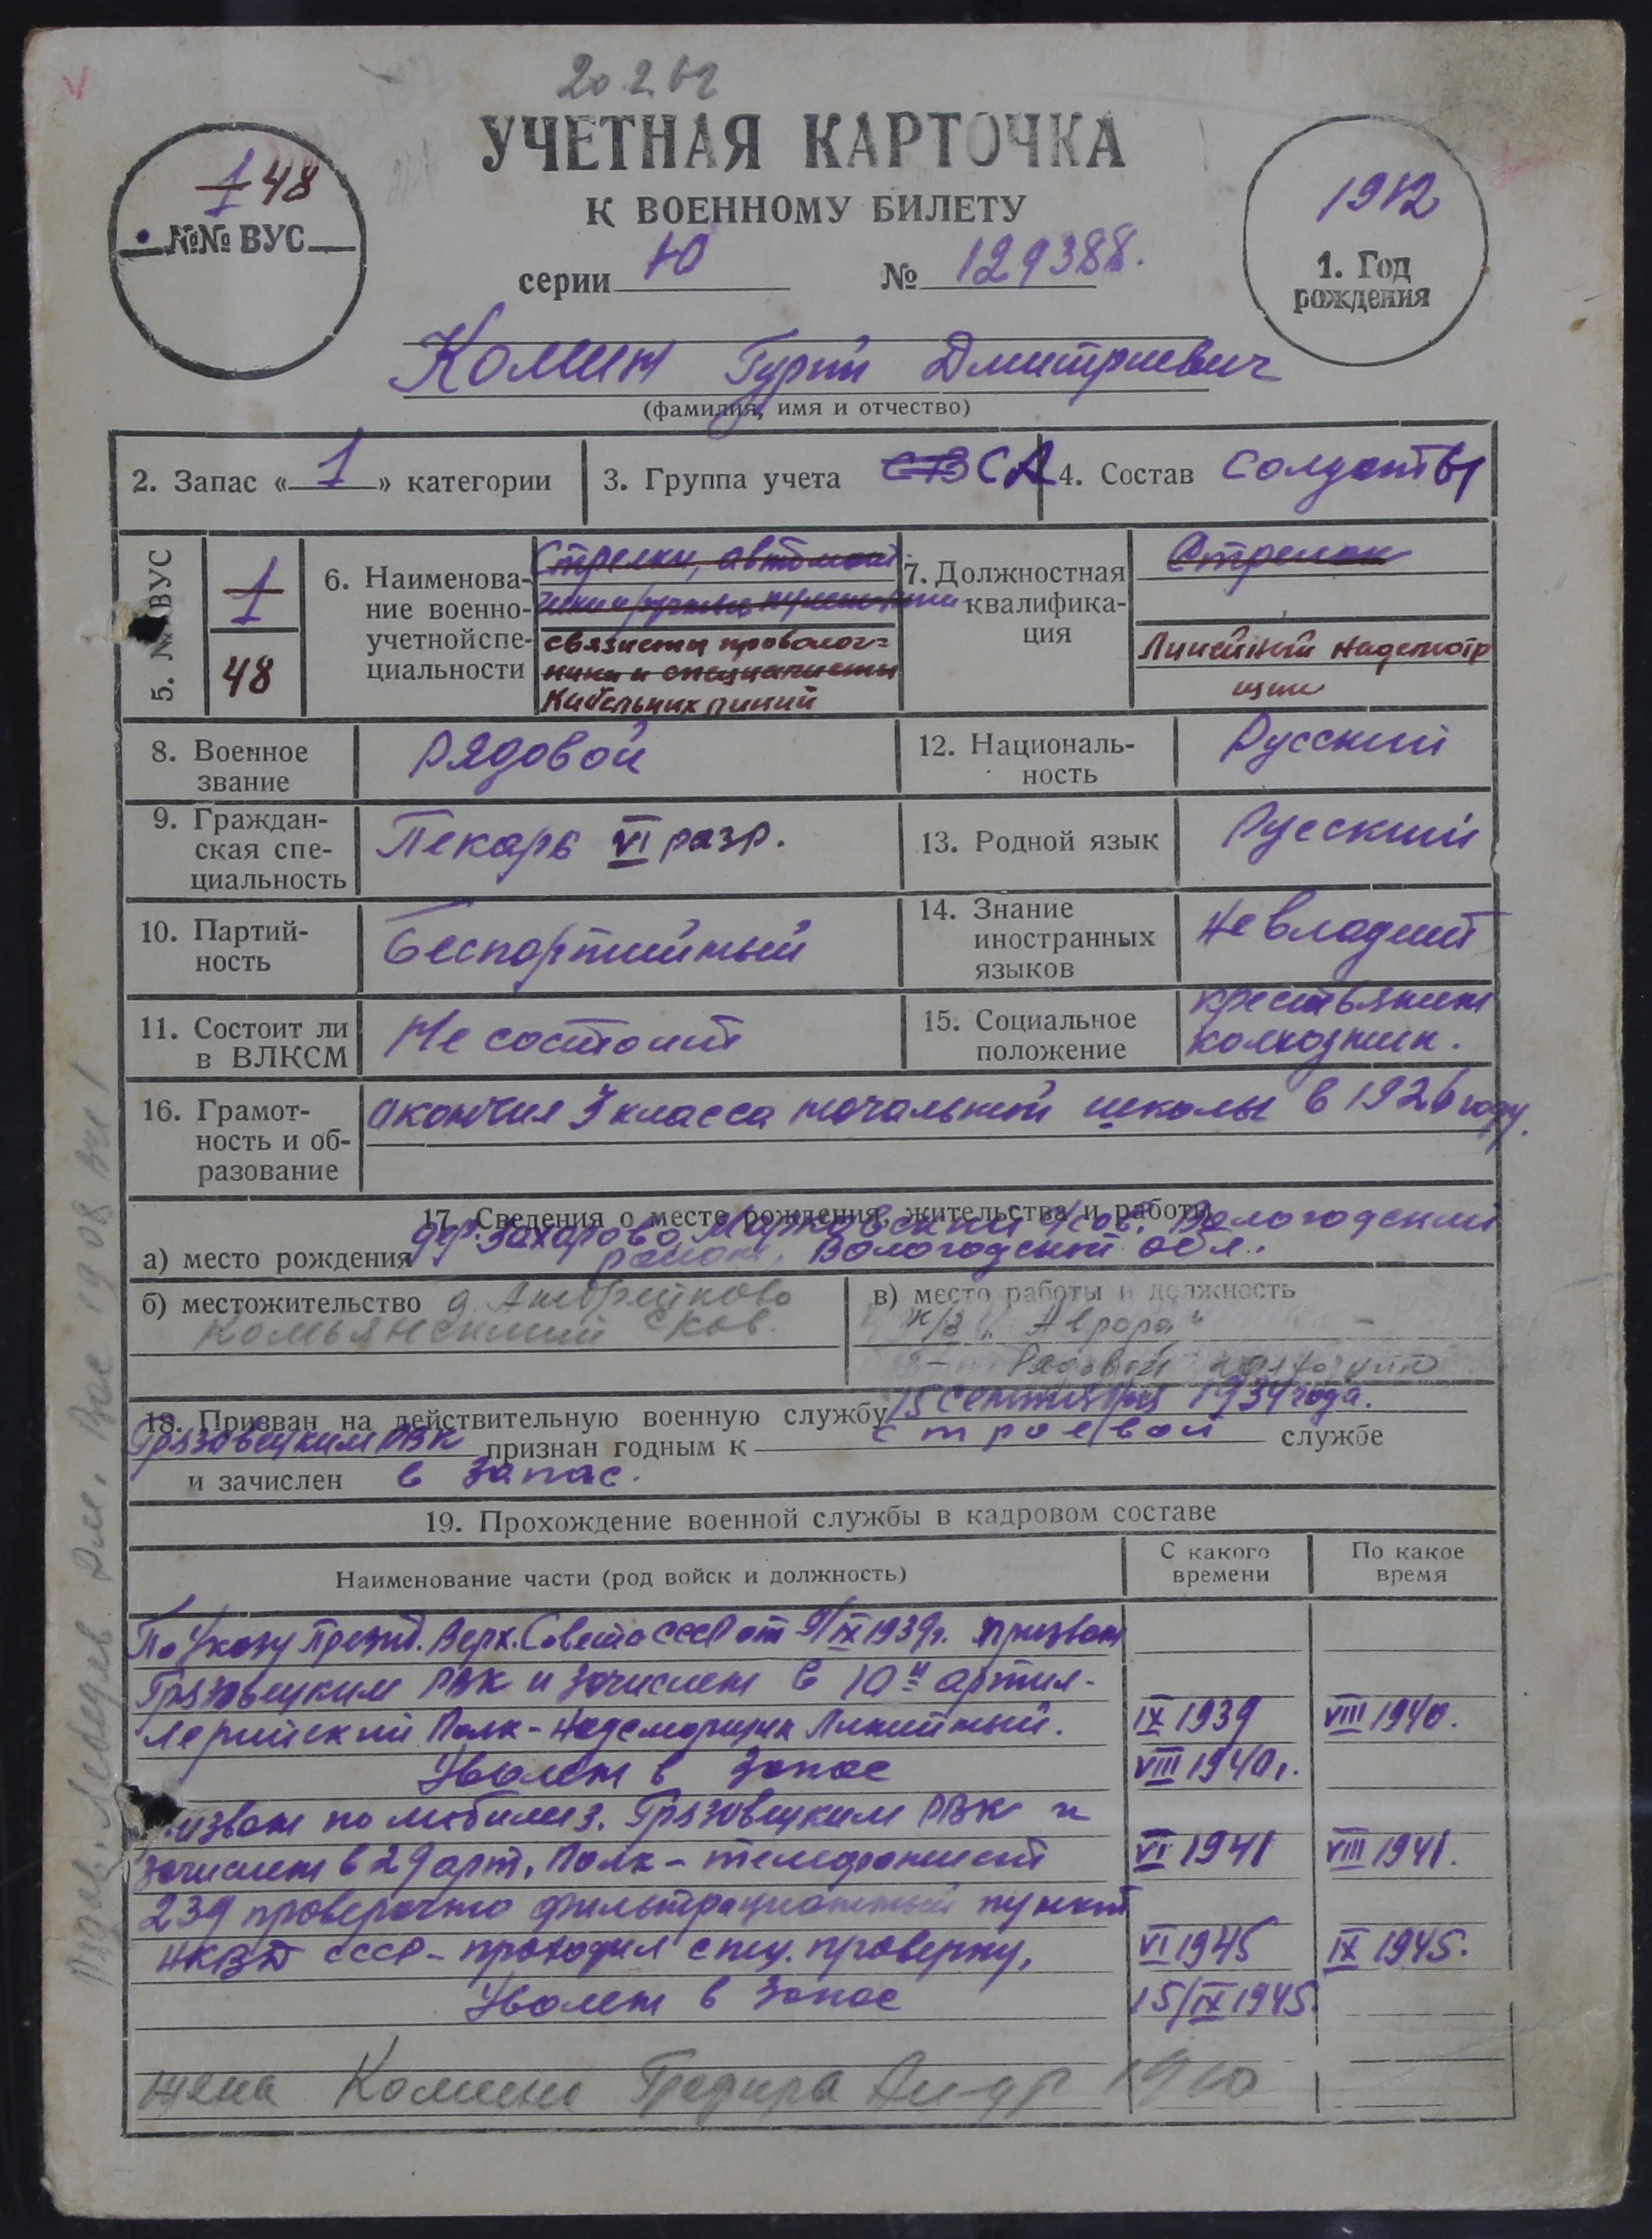 20.2.62
УЧЕТНАЯ КАРТОЧКА
К ВОЕННОМУ БИЛЕТУ
серии Ю № 129388.
1 48
№№ ВУС
1912
1. Год
рождения
Комин Гурий Дмитриевич
(фамилия, имя и отчество)
2. Запас « 1 » категории
3. Группа учета СВ СА
4. Состав солдаты
5. №ВУС
1
48
6. Наименова-
ние военно-
учетной спе-
циальности
Стрелки, автомат
чики и ручные пулеметчики
связисты проволоч=
ники и специалисты
кабельных линий
7. Должностная
квалифика-
ция
Стрелок
Линейный надсмотр
щик
8. Военное
звание
Рядовой
12. Националь-
ность
Русский
9. Граждан-
ская спе-
циальность
Пекарь VI разр.
13. Родной язык
Русский
10. Партий-
ность
Беспартийный
14. Знание
иностранных
языков
Не владеет
11. Состоит ли
в ВЛКСМ
Не состоит
15. Социальное
положение
крестьянин
колхозник.
16. Грамот-
ность и об-
разование
окончил 3 класса начальной школы в 1926 году.
17. Сведения о месте рождения, жительства и работы
а) место рождения дер. Захарово, Марковский с/сов. Вологодский
район, Вологодской обл.
б) местожительство д. Андрейково
Комьянский с/сов.
в) место работы и должность
к/з "Аврора" -
- Рядовой колхозник
18. Призван на действительную военную службу 15 сентября 1934 года.
Грязовецким РВК признан годным к строевой службе
и зачислен в запас.
19. Прохождение военной службы в кадровом составе
Наименование части (род войск и должность)
С какого
времени
По какое
время
По Указу Презид. Верх. Совета СССР от 9/IX 1939г. призван
Грязовецким РВК и зачислен в 10й артил-
лерийский Полк - надсмотрщик Линейный. IX 1939 VIII 1940.
Уволен в запас VIII 1940г.
изван по мобилиз. Грязовецким РВК и
зачислен в 29 арт. Полк - телефонист VI 1941 VIII 1941.
239 проверочно фильтрационный пункт
НКВД СССР - проходил спец. проверку, VI 1945 IX 1945.
Уволен в запас 15/IX 1945.
жена Комина Глафира 1910